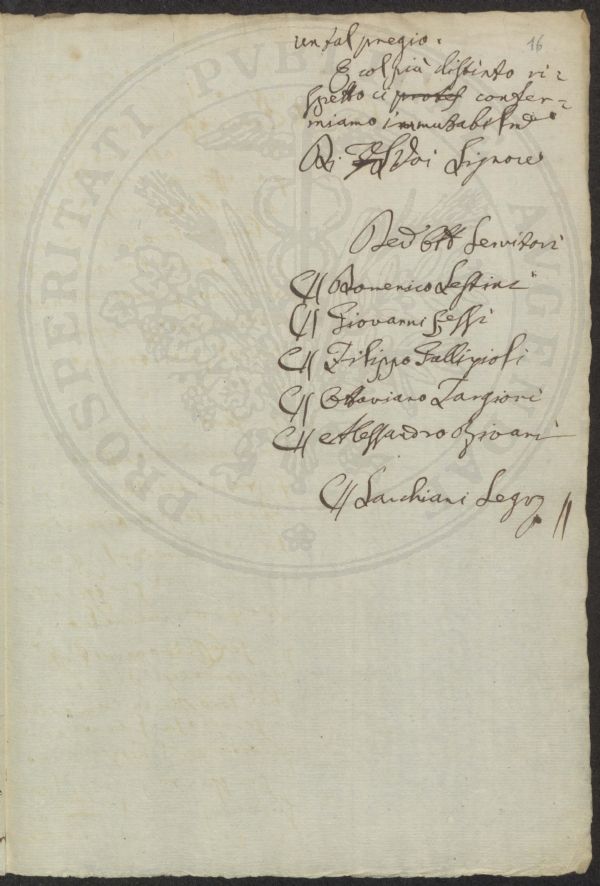 16
un tal pregio.
E col più distinto ri=
spetto ci protes confer=
miamo immutabilm.e
Di Voi Signore
Servitori
C// Domenico Sestini
C// Giovanni Fessi
C// Filippo Gallizioli
C// Ottaviano Targioni
C// Alessandro Rivani
C//
PROSPERITATI PVBLICAE AVGENDAE